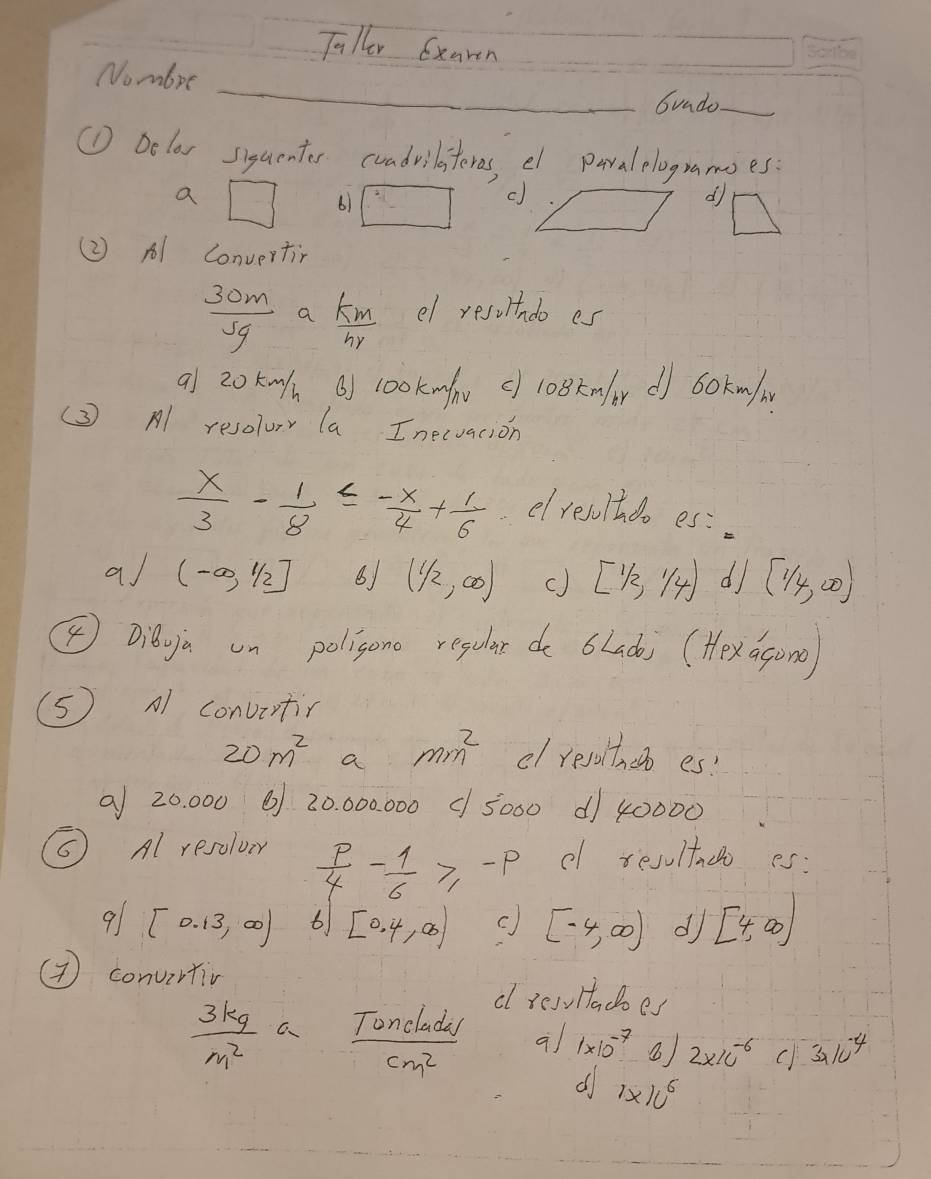 Taller Examen
Scribe
Nombre ____________ Grado ___
① De los siguientes cuadriláteros, el paralelogramo es:
a b) c) d)
② Al convertir
30m/sg a km/hr el resultado es
a) 20 km/h b) 100km/hr c) 108km/hr d) 60km/hr
③ Al resolver la Inecuación
x/3 - 1/8 ≤ -x/4 + 1/6 el resultado es:
a) (-∞, 1/2] b) (1/2, ∞) c) [1/2, 1/4) d) [1/4, ∞)
④ Dibuja un polígono regular de 6 Lados (Hexágono)
⑤ Al convertir
20m² a mm² el resultado es:
a) 20.000 b) 20.000.000 c) 5000 d) 40000
⑥ Al resolver P/4 - 1/6 ≥ -P el resultado es:
a) [0.13, ∞) b) [0.4, ∞) c) [-4, ∞) d) [4, ∞)
⑦ convertir
3kg/m² a Toneladas/cm² el resultado es
a) 1x10⁻⁷ b) 2x10⁻⁶ c) 3x10⁻⁴
d) 1x10⁶